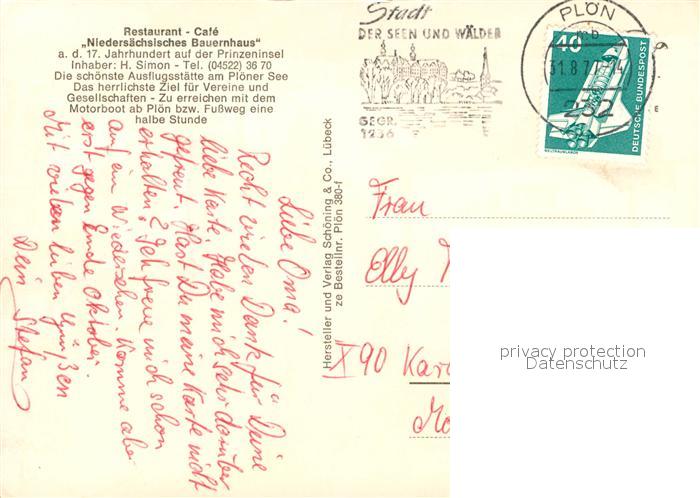 Restaurant - Café
„Niedersächsisches Bauernhaus"
a. d. 17. Jahrhundert auf der Prinzeninsel
Inhaber: H. Simon - Tel. (04522) 36 70
Die schönste Ausflugsstätte am Plöner See
Das herrlichste Ziel für Vereine und
Gesellschaften - Zu erreichen mit dem
Motorboot ab Plön bzw. Fußweg eine
halbe Stunde
Liebe Oma!
Recht vielen Dank für Deine
liebe Karte. Habe mich sehr darüber
gefreut. Hast Du meine Karte nicht
erhalten? Ich freue mich schon
auf ein Wiedersehen. Komme aber
erst gegen Ende Oktober.
Mit vielen lieben Grüßen
Dein Stefan
Hersteller und Verlag Schöning & Co., Lübeck
ze Bestellnr. Plön 380-f
Stadt
DER SEEN UND WÄLDER
GEGR.
1236
PLÖN
mb
31.8.77
232
40
DEUTSCHE BUNDESPOST
WELTRAUMLABOR
Frau
Elly
X90 Kar
privacy protection
Datenschutz